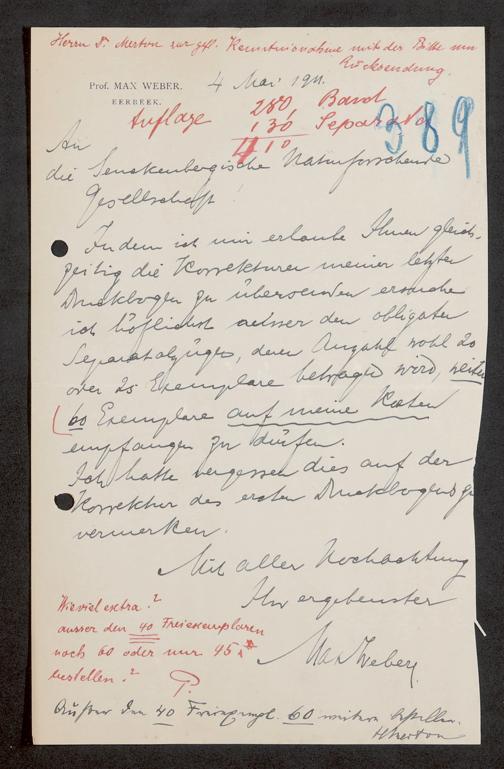 Herrn Dr. Merton zur gefl. Kenntnisnahme mit der Bitte um
Rücksendung.
Prof. MAX WEBER.
EERBEEK.
4 Mai 1911.
Auflage
280 Band
130 Separata
410
389
An
die Senckenbergische Naturforschende
Gesellschaft
Indem ich mir erlaube Ihnen gleich-
zeitig die Korrekturen meiner letzten
Druckbogen zu übersenden ersuche
ich höflichst ausser den obligaten
Separatabzügen, deren Anzahl wohl 20
oder 25 Exemplare betragen wird, weitere
60 Exemplare auf meine Kosten
empfangen zu dürfen.
Ich hatte vergessen dies auf der
Korrektur des ersten Druckbogens zu
vermerken.
Mit aller Hochachtung
Ihr ergebenster
Max Weber.
Wieviel extra?
ausser den 40 Freiexemplaren
noch 60 oder nur 45
bestellen?
P.
Außer den 40 Freiexempl. 60 weitere bestellen.
HMerton